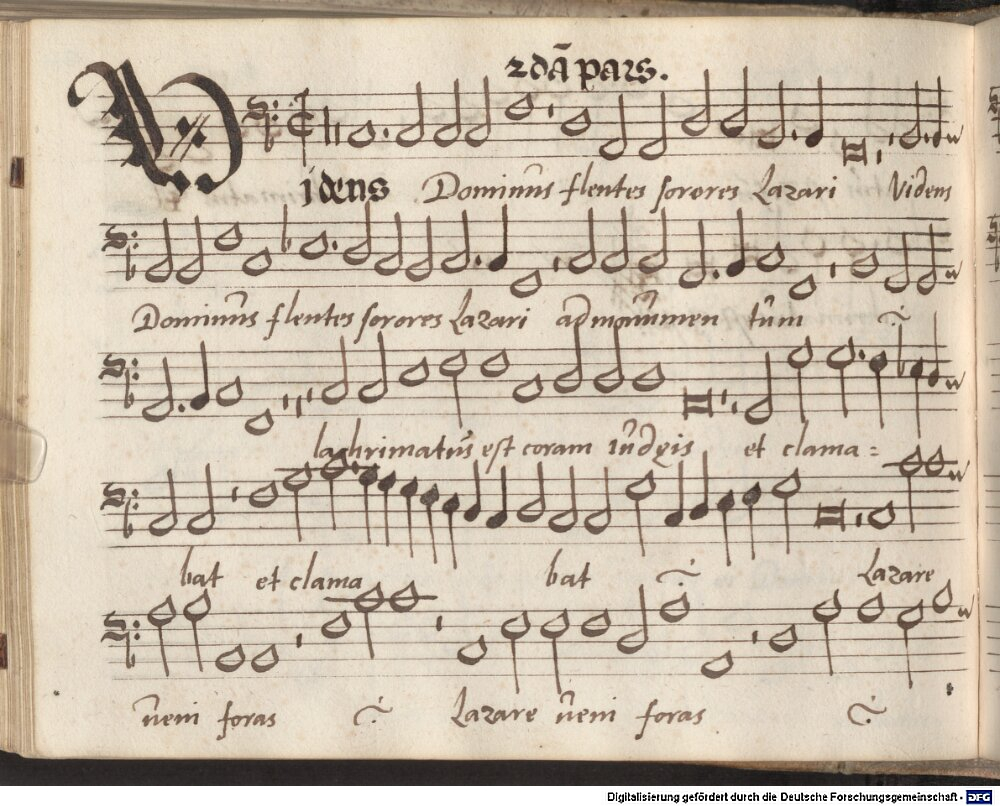 2dā pars.
Videns Dominus flentes sorores Lazari Videns
Dominus flentes sorores Lazari ad monumen tum
lachrimatus est coram iudęis et clama=
bat et clama bat Lazare
veni foras Lazare veni foras
Digitalisierung gefördert durch die Deutsche Forschungsgemeinschaft - DFG